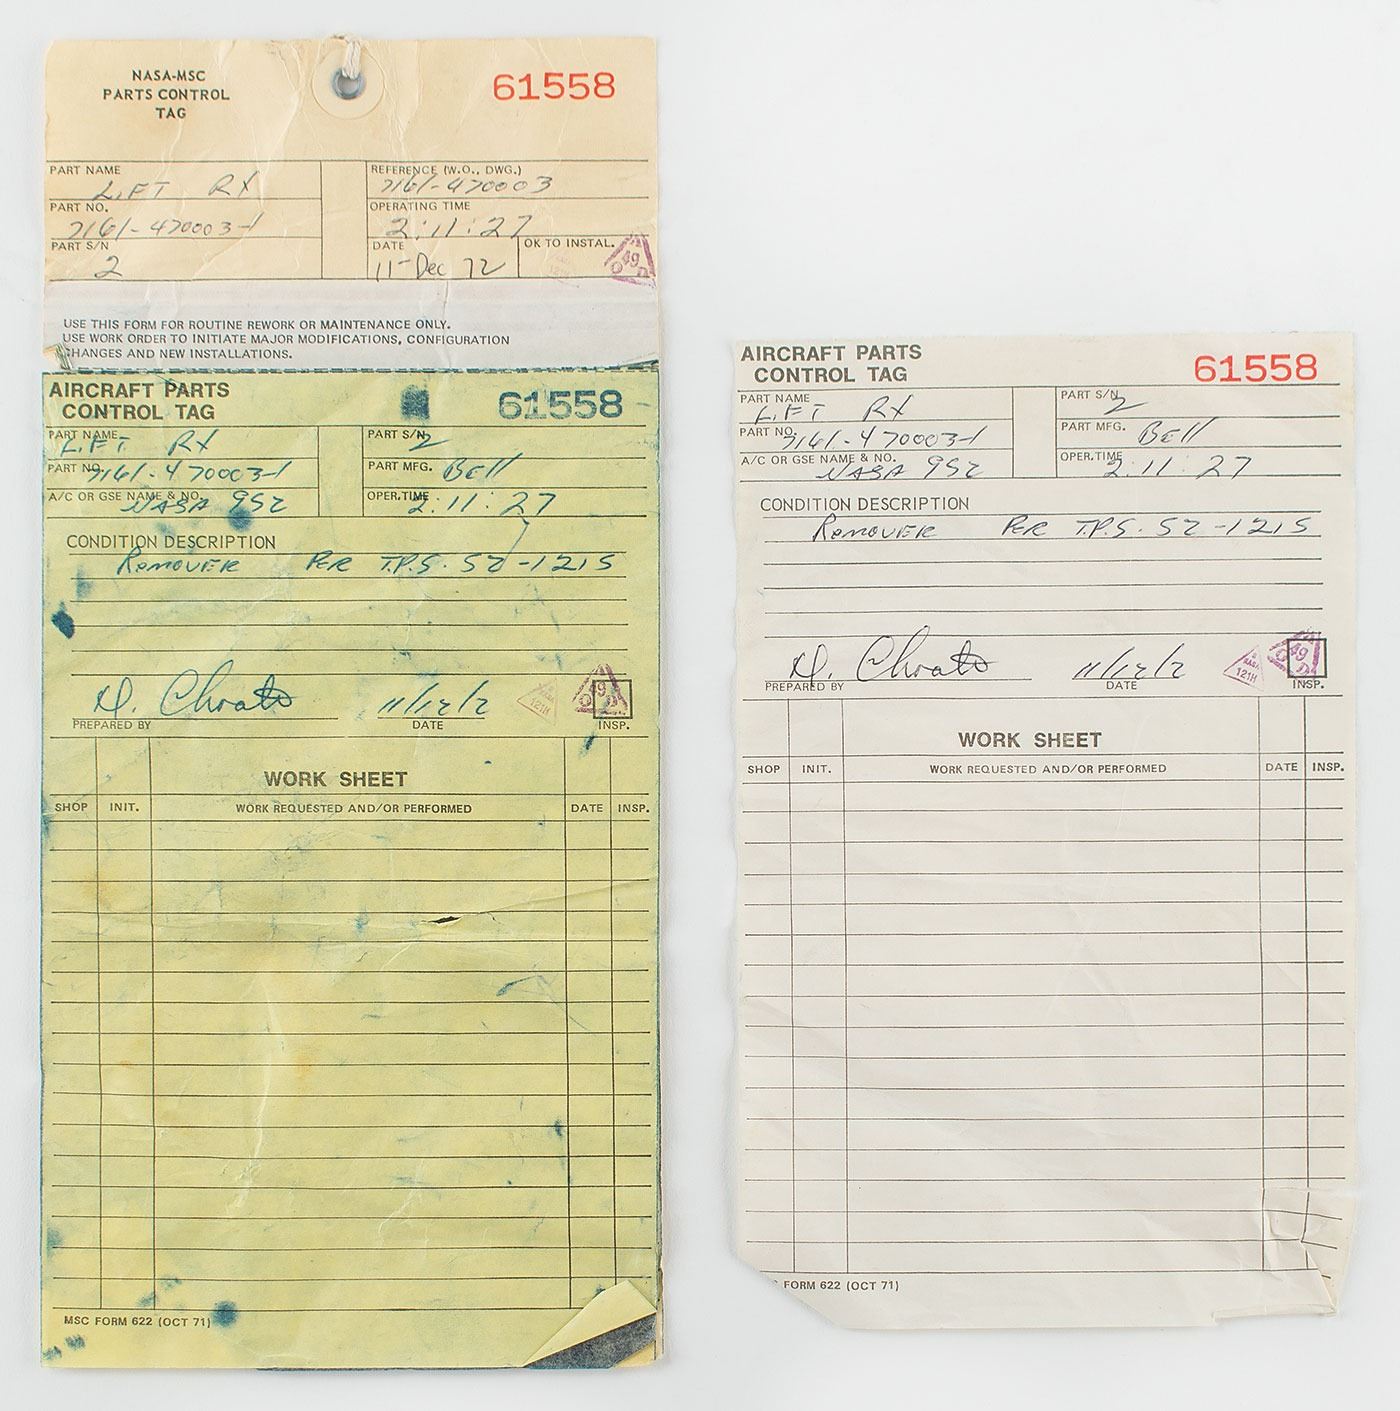 NASA-MSC
PARTS CONTROL
TAG
61558
PART NAME
LIFT RX
REFERENCE (W.O., DWG.)
7161-470003
PART NO.
7161-470003-1
OPERATING TIME
2:11:27
PART S/N
2
DATE
11-Dec 72
OK TO INSTAL.
49
USE THIS FORM FOR ROUTINE REWORK OR MAINTENANCE ONLY.
USE WORK ORDER TO INITIATE MAJOR MODIFICATIONS, CONFIGURATION
CHANGES AND NEW INSTALLATIONS.
AIRCRAFT PARTS
CONTROL TAG
61558
PART NAME
LIFT RX
PART S/N
2
PART NO.
7161-470003-1
PART MFG.
Bell
A/C OR GSE NAME & NO.
NASA 952
OPER.TIME
2:11:27
CONDITION DESCRIPTION
REMOVER PER T.P.S. 52-1215
D. Choate
11/12/2
121H
49
PREPARED BY
DATE
INSP.
WORK SHEET
SHOP INIT. WORK REQUESTED AND/OR PERFORMED DATE INSP.
MSC FORM 622 (OCT 71)
AIRCRAFT PARTS
CONTROL TAG
61558
PART NAME
LIFT RX
PART S/N
2
PART NO.
7161-470003-1
PART MFG.
Bell
A/C OR GSE NAME & NO.
NASA 952
OPER.TIME
2:11:27
CONDITION DESCRIPTION
REMOVER PER T.P.S. 52-1215
D. Choate
11/12/2
NASA
121H
49
PREPARED BY
DATE
INSP.
WORK SHEET
SHOP INIT. WORK REQUESTED AND/OR PERFORMED DATE INSP.
FORM 622 (OCT 71)